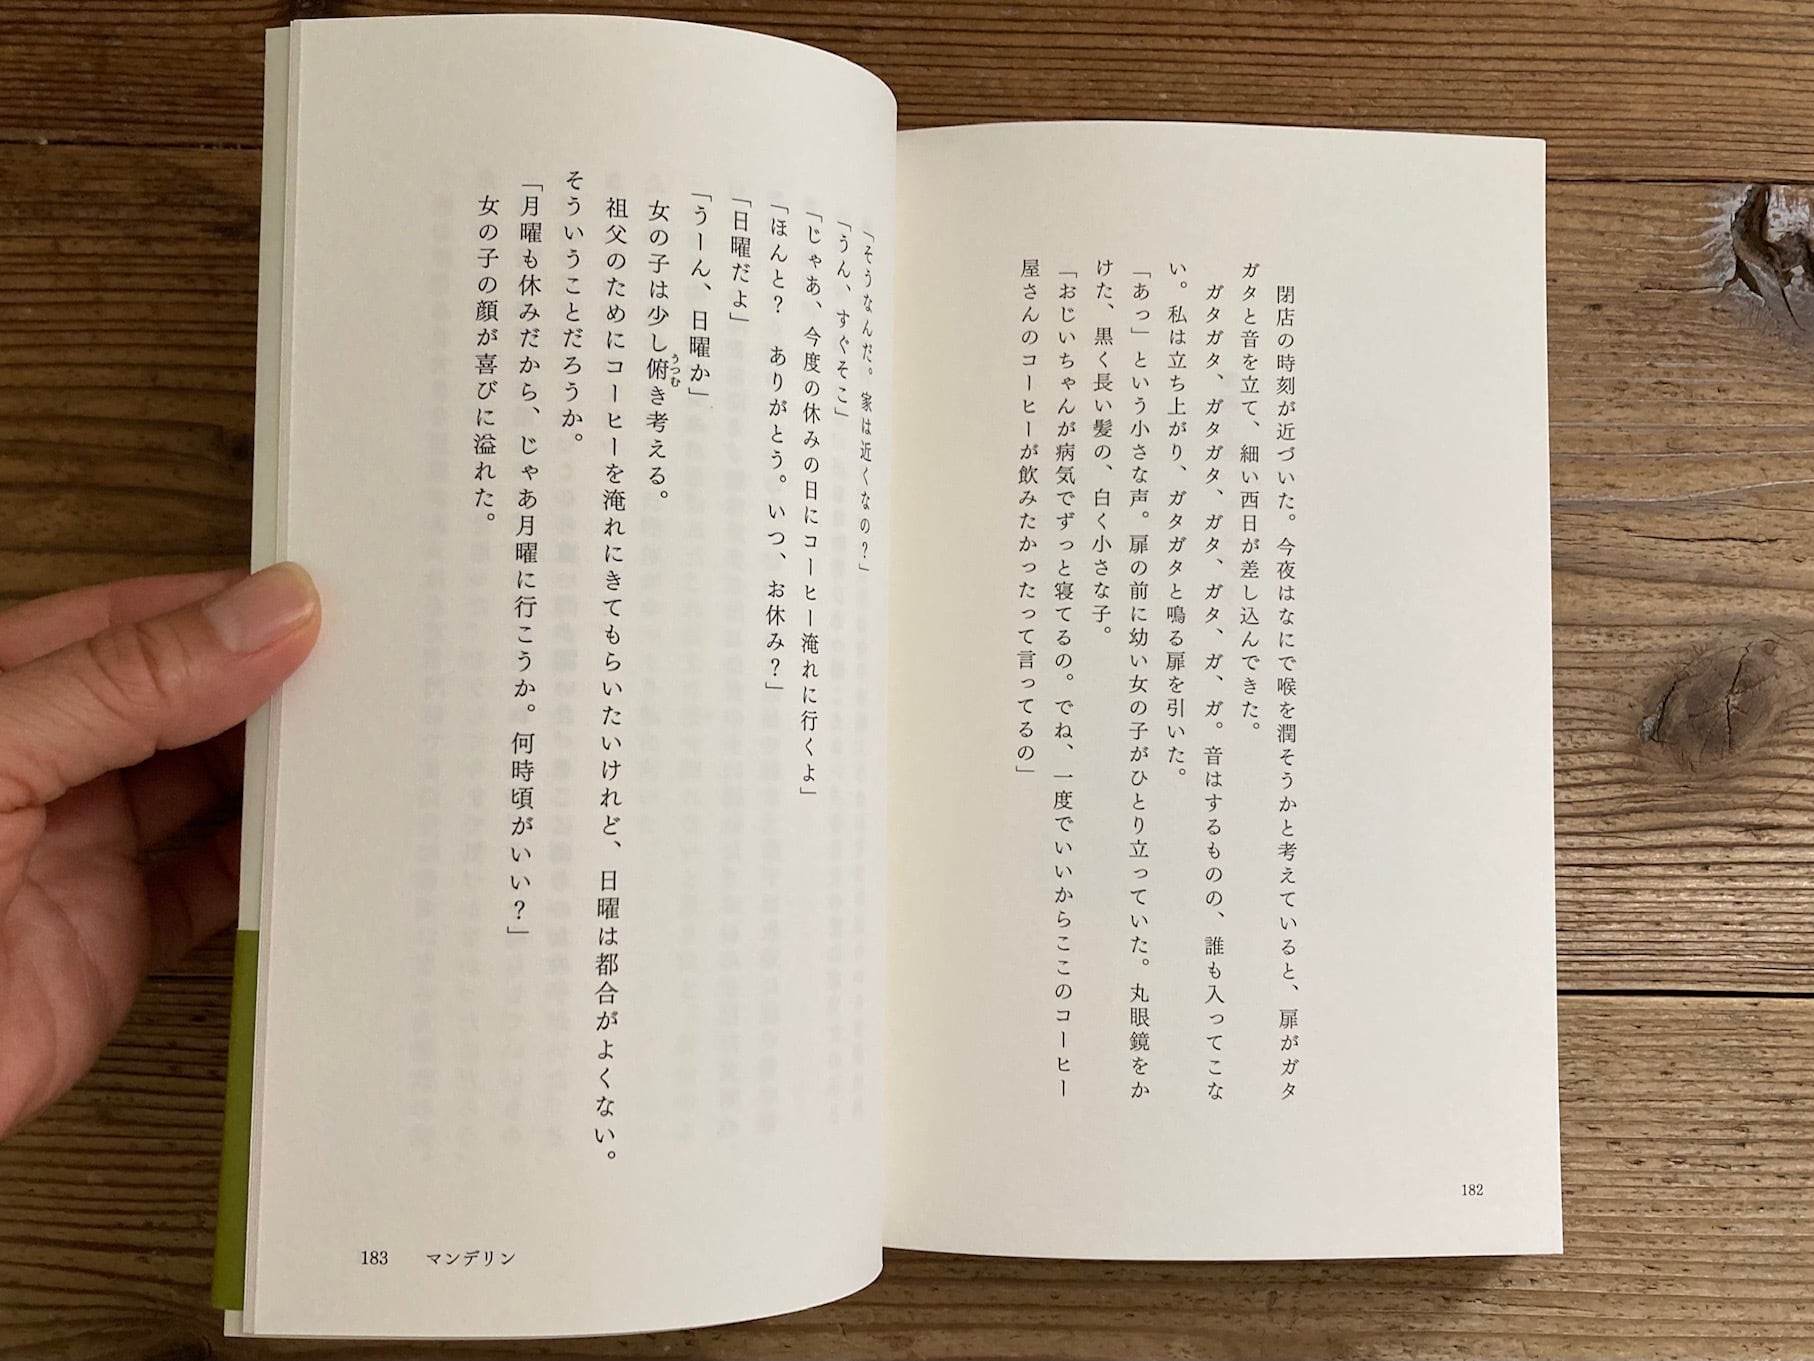 閉店の時刻が近づいた。今夜はなにで喉を潤そうかと考えていると、扉がガタ
ガタと音を立て、細い西日が差し込んできた。
ガタガタ、ガタガタ、ガタ、ガタ、ガ、ガ。音はするものの、誰も入ってこな
い。私は立ち上がり、ガタガタと鳴る扉を引いた。
「あっ」という小さな声。扉の前に幼い女の子がひとり立っていた。丸眼鏡をか
けた、黒く長い髪の、白く小さな子。
「おじいちゃんが病気でずっと寝てるの。でね、一度でいいからここのコーヒー
屋さんのコーヒーが飲みたかったって言ってるの」
182
「そうなんだ。家は近くなの？」
「うん、すぐそこ」
「じゃあ、今度の休みの日にコーヒー淹れに行くよ」
「ほんと？　ありがとう。いつ、お休み？」
「日曜だよ」
「うーん、日曜か」
女の子は少し俯うつむき考える。
祖父のためにコーヒーを淹れにきてもらいたいけれど、日曜は都合がよくない。
そういうことだろうか。
「月曜も休みだから、じゃあ月曜に行こうか。何時頃がいい？」
女の子の顔が喜びに溢れた。
183　マンデリン